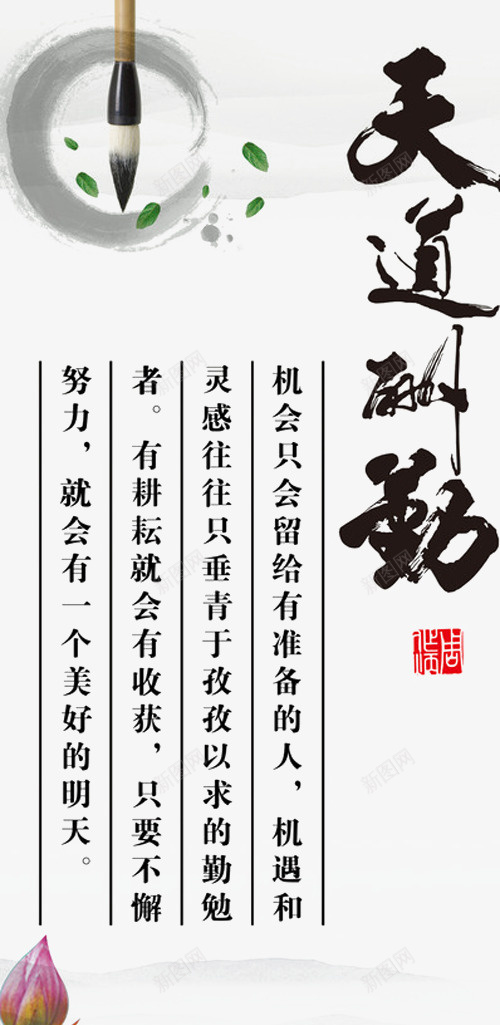 天道酬勤
机会只会留给有准备的人，机遇和
灵感往往只垂青于孜孜以求的勤勉
者。有耕耘就会有收获，只要不懈
努力，就会有一个美好的明天。
新图网